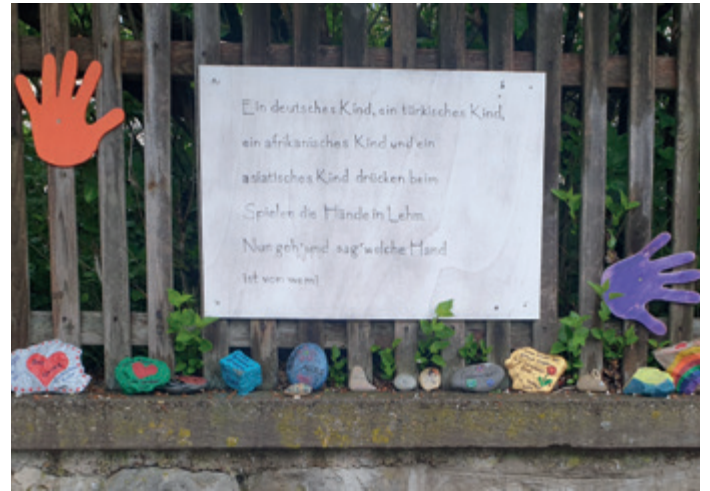 Ein deutsches Kind, ein türkisches Kind,
ein afrikanisches Kind und ein
asiatisches Kind drücken beim
Spielen die Hände in Lehm
Nun geh' und sag' welche Hand
ist von wem!